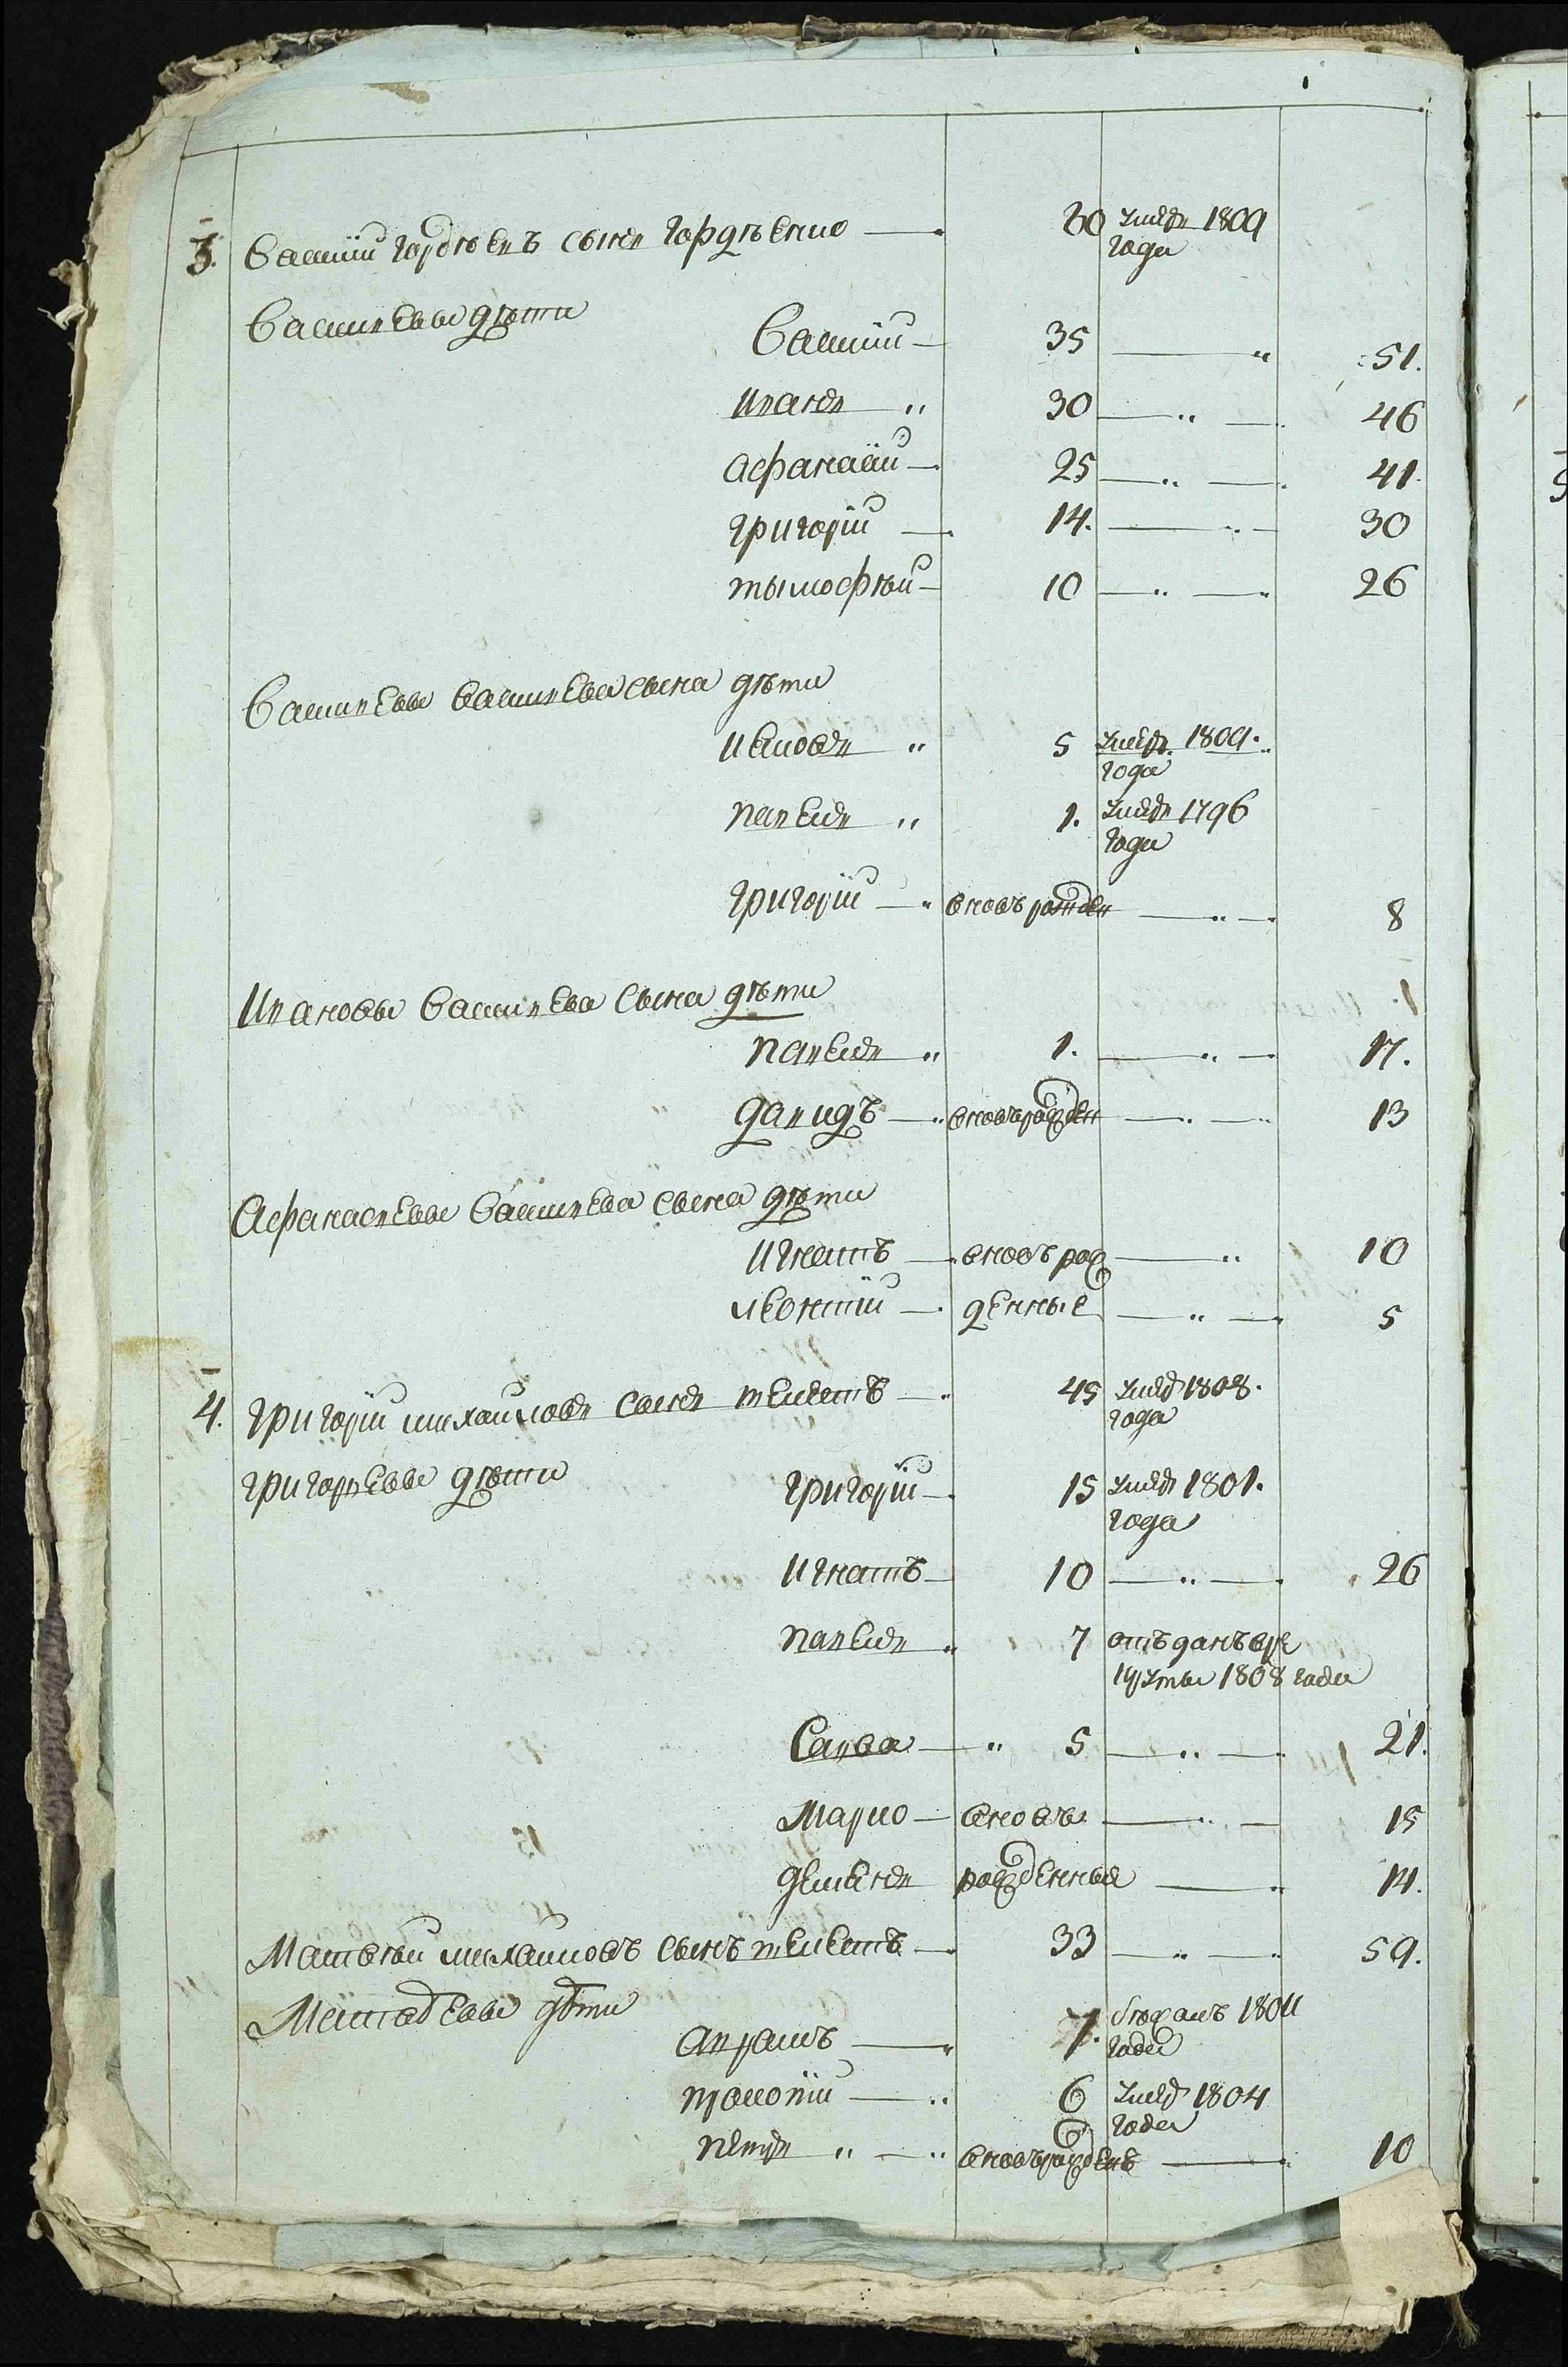 3. Василий Гордѣевъ сынъ Гордѣенко — 60 умеръ 1809
года
Васильевы дѣти
Василий — 35 — " 51.
Иванъ " 30 — " — 46
Афанасий — 25 — " — 41.
Григорий — 14. — " — 30
Тымофѣй — 10 — " — 26
Васильевы Васильева сына дѣти
Иаковъ " 5 умеръ 1809.
года
Павелъ " 1. умеръ 1796
года
Григорий — " вновь рожден — " — 8
Ивановы Васильева сына дѣти
Павелъ " 1. — " — 17.
Давидъ — " вновь рожден — " — 13
Афанасьевы Васильева сына дѣти
Игнатъ — вновь рож — " 10
Леонтий — денные — " — 5
4. Григорий Михайловъ сынъ — " 45 умеръ 1808.
года
Григорьевы дѣти Григорий — 15 умеръ 1801.
года
Игнатъ — 10 — " — 26
Павелъ " 7 отъданъ в ре
круты 1808 года
Савва — " 5 — " — 21.
Марко — вновь — " — 15
Демьянъ рожденныя — " 14.
Матвѣй Михайловъ сынъ — 33 — " — 59.
Матвѣевы дѣти
Аврамъ — 7. бѣжалъ 1804
года
Прокопий — " 6 умеръ 1804
года
Петръ " — " вновь рожденъ — 10